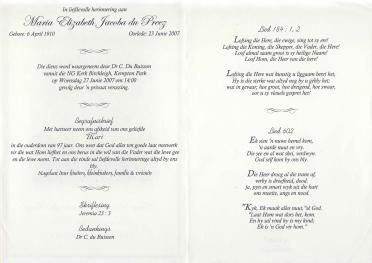 In liefdevolle herinnering aan
Maria Elizabeth Jacoba du Preez
Gebore: 6 April 1910 Oorlede: 23 Junie 2007
Die diens word waargeneem deur Dr C. Du Buisson
vanuit die NG Kerk Birchleigh, Kempton Park
op Woensdag 27 Junie 2007 om 14:00
gevolg deur 'n private verassing.
Begrafnisbrief
Met hartseer neem ons afskeid van ons geliefde
Mari
in die ouderdom van 97 jaar. Ons weet dat God alles ten goede laat meewerk
vir die wat Hom liefhet en ons berus in die wil van die Vader wat die lewe gee
en die lewe neem. Tot aan die einde sal liefdevolle herinneringe altyd by ons
bly.
Nagelaat deur kinders, kleinkinders, familie & vriende
Skriflesing
Jeremia 23 : 5
Bedankings
Dr C. du Buisson
Lied 184 : 1, 2
Lofsing die Here, die ewige, sing tot sy eer!
Lofsing die Koning, die Skepper, die Vader, die Here!
Loof almal saam groot is sy heilige Naam!
Loof Hom, die Heer van die here!
Lofsing die Here wat kunstig u liggaam berei het,
Hy is die sterke wat altyd nog by u gebly het;
wat in gevaar, hoe groot, hoe dreigend, hoe swaar,
oor u sy vleuels gesprei het!
Lied 602
Ek sien 'n nuwe hemel kom,
'n aarde nuut en vry.
Die see en al wat skei, verdwyn.
God self kom by ons bly.
Die Heer droog al die trane af,
verby is droefheid, dood.
ja, pyn en smart wyk uit die hart
ons moeite, angs en nood.
"Kyk, Ek maak alles nuut," sê God.
"Laat Hom wat dors het, kom.
En hy sal rondom my kind;
Ek is 'n God vir hom."